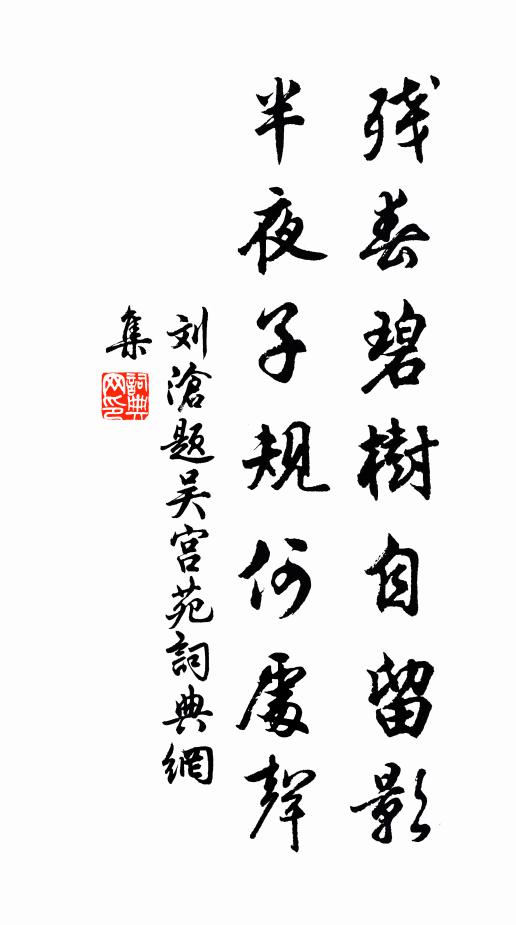 残春碧樹自留影
半夜子規何處聲
刘滄题吴宫苑詞典網
集
詞典
网印